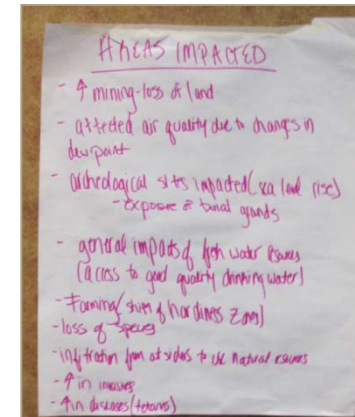 AREAS IMPACTED
- ↑ mining-loss of land
- affected air quality due to changes in
dew point
- archeological sites impacted (sea level rise)
- exposure of burial grounds
- general impacts of fresh water
(access to good quality drinking water)
- Farming/ shift of hardiness zones)
- loss of species
- infiltration from outsiders to the natural
- ↑ in
- ↑ in diseases (tetanus)